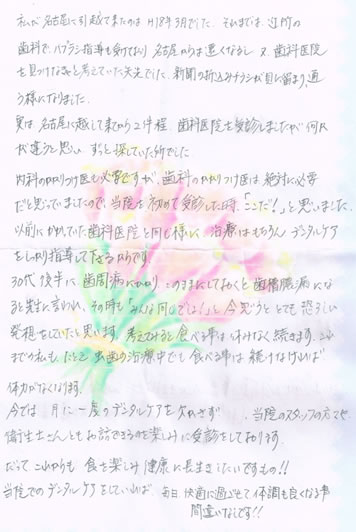 私が名古屋に引越て来たのはH18年3月でした。それまでは、近所の
歯科で、ハブラシ指導も受けており名古屋からは遠くなるし 又、歯科医院
を見つけなきゃと考えていた矢先でした。新聞の折込みチラシが目に留まり、通
う様になりました。
実は、名古屋に越して来てから2件程、歯科医院を受診しましたが何か
が違うと思い ずっと探していた所でした。
内科のかかりつけ医も必要ですが、歯科のかかりつけ医は絶対に必要
だと思っていましたので、当院を初めて受診した時、「ここだ!」と思いました。
以前にかかっていた歯科医院と同じ様に、治療はもちろん デンタルケア
をしっかり指導して下さるからです。
30代後半に、歯周病にかかり、このままにしておくと歯槽膿漏にな
ると先生に言われ、その時も「みんな同じでしょ?」と今思うととても恐ろしい
発想をしていたと思います。考えてみると食べる事は休みなく続きます。これ
までの私もたとえ虫歯の治療中でも食べる事は続けなければ
体力がなくなります。
今では 1月に一度のデンタルケアを欠かさず 、当院のスタッフの方々や
衛生士さんともお話できるのを楽しみに受診をしております。
だって これからも 食を楽しみ 健康に長生きしたいですもの!!
当院でのデンタルケアをしていれば、毎日快適に過ごせて体調も良くなる事
間違いなしです!!